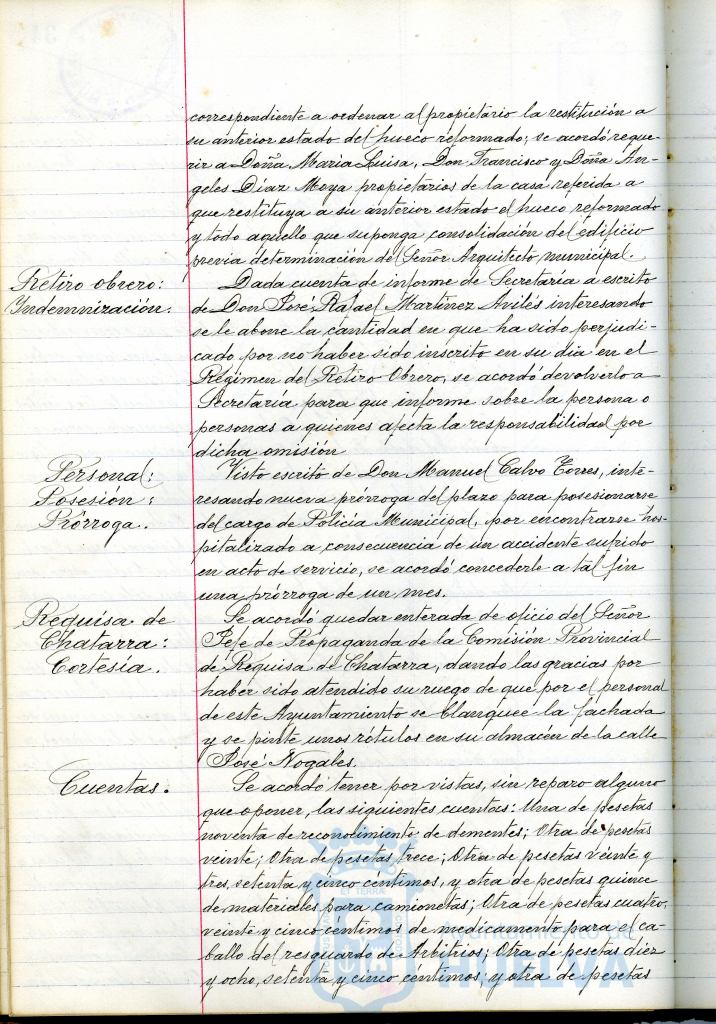 correspondiente a ordenar al propietario la restitución a
su anterior estado del hueco reformado; se acordó reque-
rir a Doña María Luisa, Don Francisco y Doña An-
geles Díaz Moya propietarios de la casa referida a
que restituya a su anterior estado el hueco reformado
y todo aquello que suponga consolidación del edificio
previa determinación del Señor Arquitecto municipal.
Retiro obrero:
Indemnización.
Dada cuenta de informe de Secretaría a escrito
de Don José Rafael Martínez Avilés interesando
se le abone la cantidad en que ha sido perjudi-
cado por no haber sido inscrito en su dia en el
Régimen del Retiro Obrero, se acordó devolverlo a
Secretaría para que informe sobre la persona o
personas a quienes afecta la responsabilidad por
dicha omisión
Personal:
Posesión:
Prórroga.
Visto escrito de Don Manuel Calvo Torres, inte-
resando nueva prórroga del plazo para posesionarse
del cargo de Policía Municipal, por encontrarse hos-
pitalizado a consecuencia de un accidente sufrido
en acto de servicio, se acordó concederle a tal fin
una prórroga de un mes.
Requisa de
Chatarra:
Cortesía.
Se acordó quedar enterada de oficio del Señor
Jefe de Propaganda de la Comisión Provincial
de Requisa de Chatarra, dando las gracias por
haber sido atendido su ruego de que por el personal
de este Ayuntamiento se blanquee la fachada
y se pinte unos rótulos en su almacén de la calle
José Nogales.
Cuentas.
Se acordó tener por vistas, sin reparo alguno
que oponer, las siguientes cuentas: Una de pesetas
noventa de reconocimiento de dementes; Otra de pesetas
veinte; Otra de pesetas trece; Otra de pesetas veinte y
tres, setenta y cinco céntimos, y otra de pesetas quince
de materiales para camionetas; Otra de pesetas cuatro,
veinte y cinco céntimos de medicamento para el ca-
ballo del resguardo de Arbitrios; Otra de pesetas diez
y ocho, setenta y cinco céntimos; y otra de pesetas